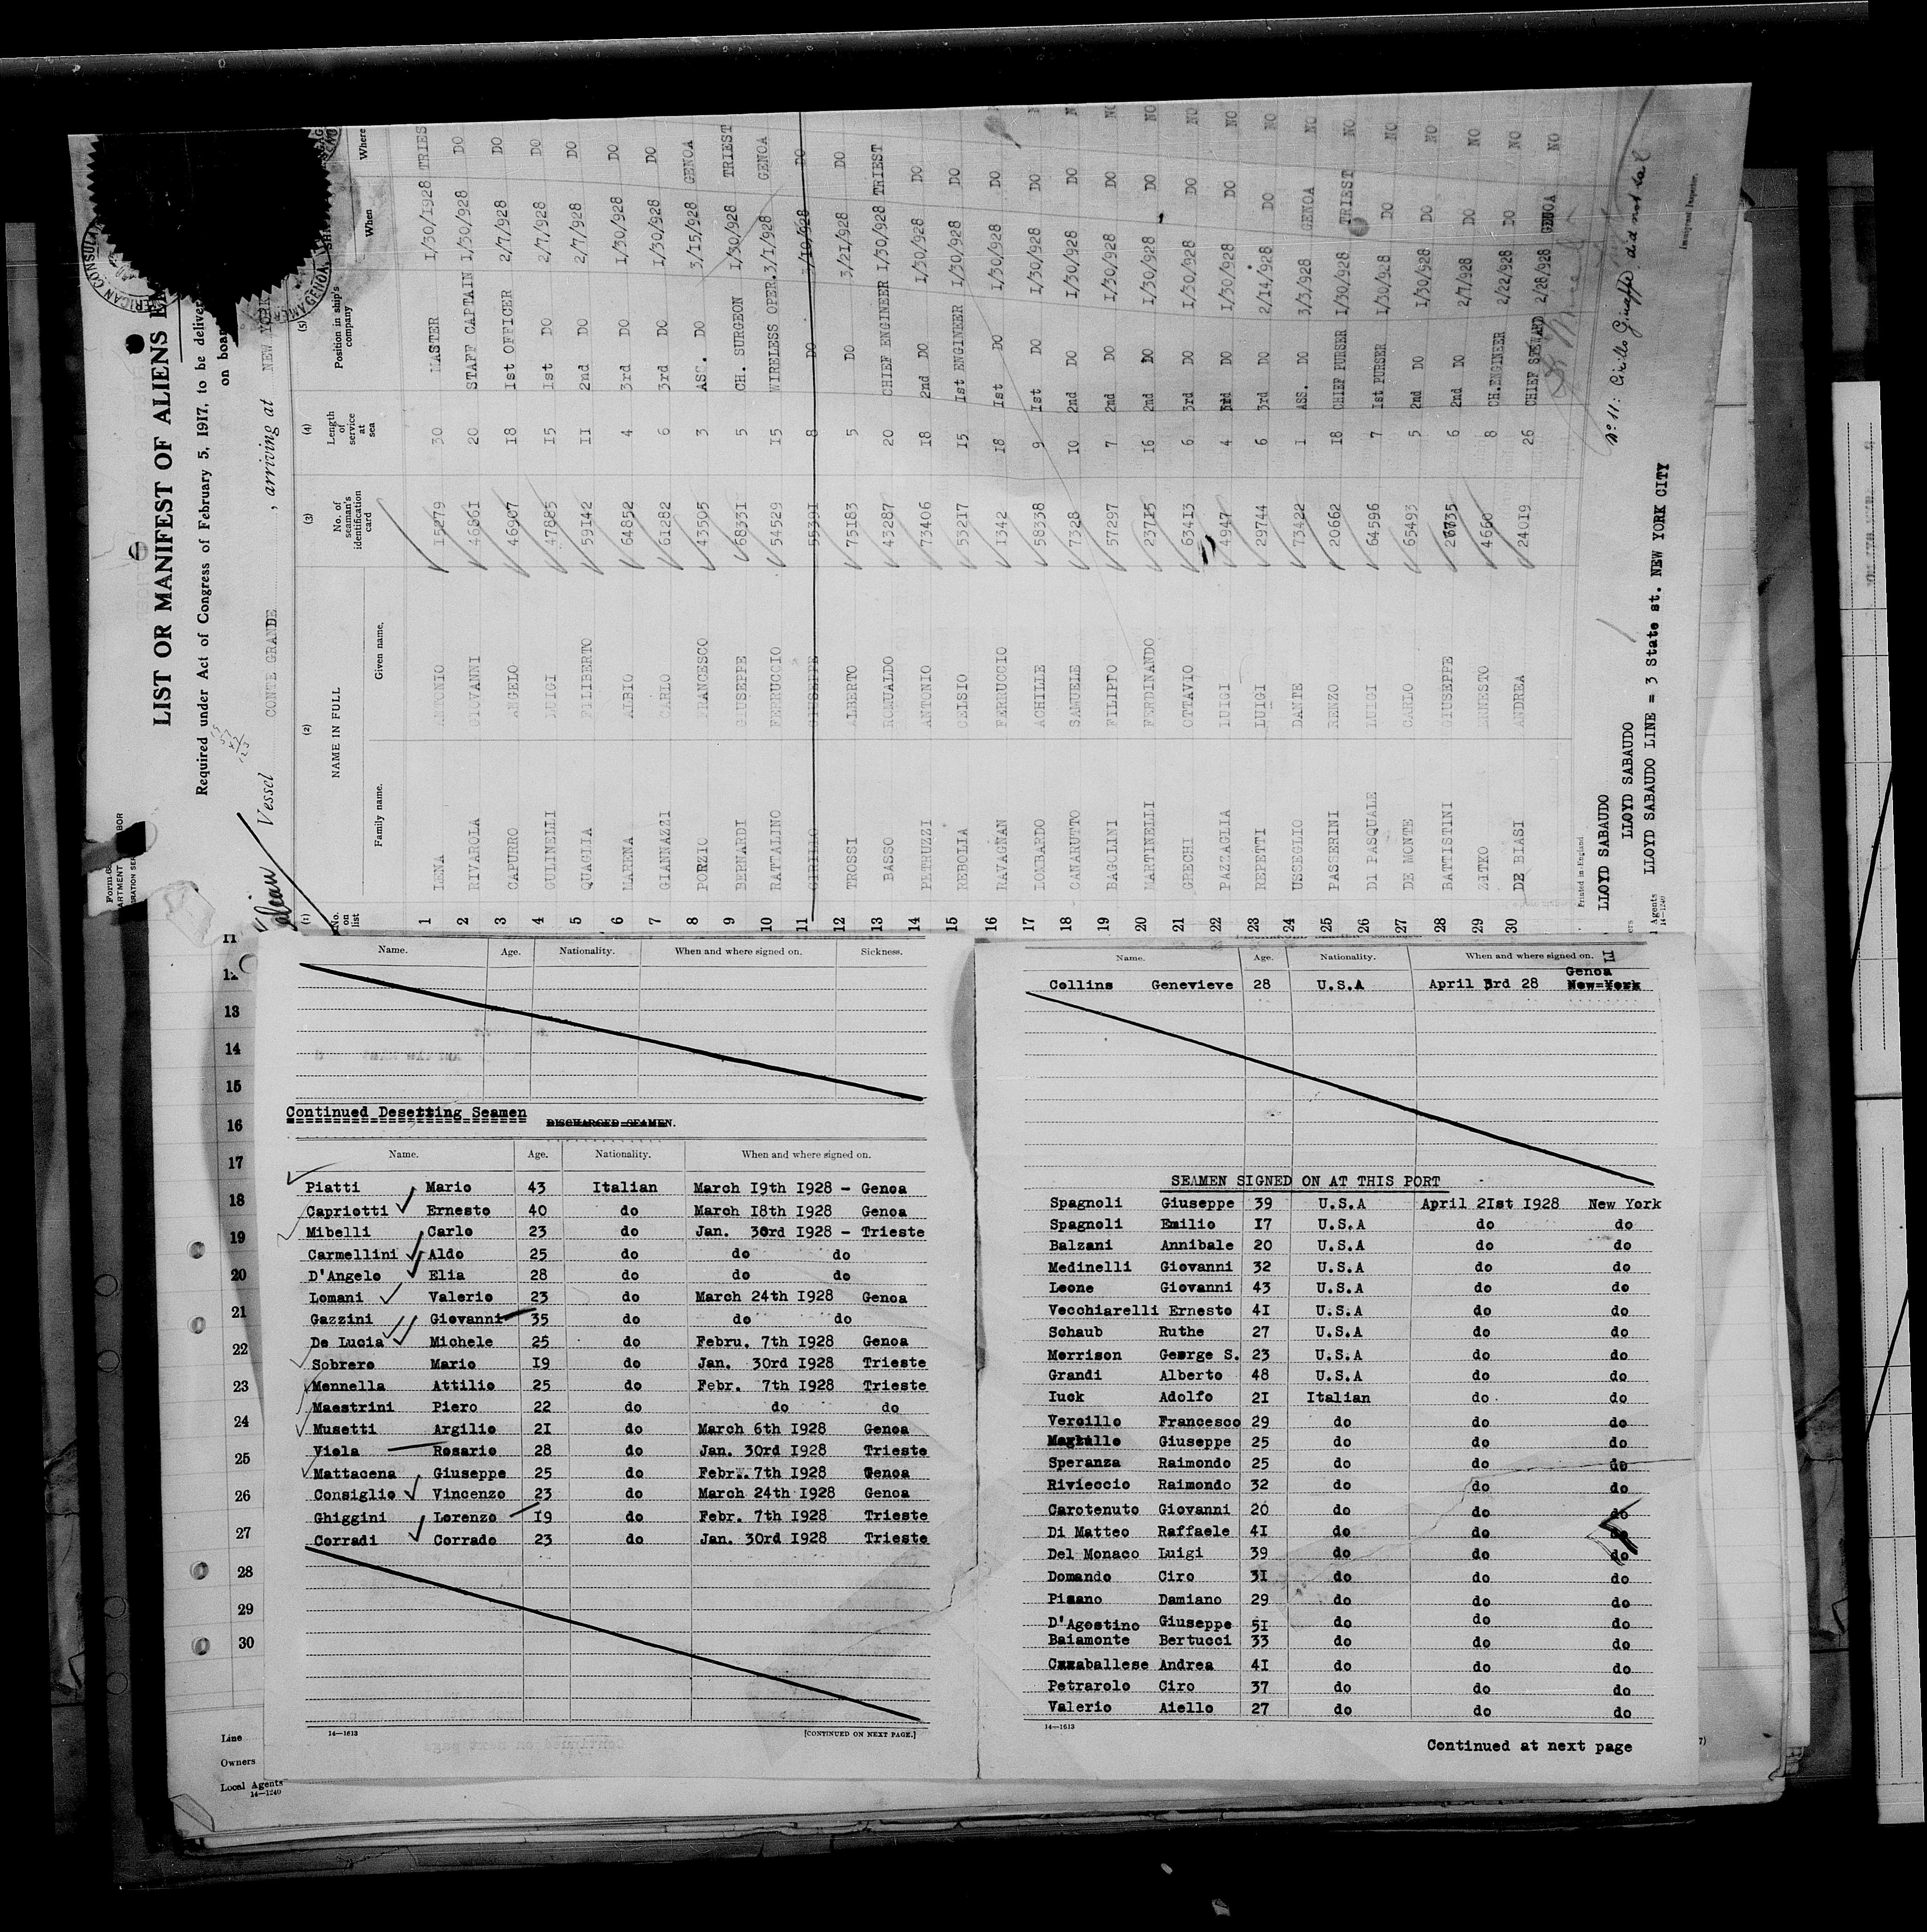 LIST OR MANIFEST OF ALIENS
Required under Act of Congress of February 5, 1917, to be deliver
on boar
Vessel CONTE GRANDE , arriving at NEW YORK
(1) (2) (3) (4) (5)
No. on list NAME IN FULL No. of seaman's identification card Length of service at sea Position in ship's company
Family name. Given name. When Where
1 LENA ANTONIO 15279 30 MASTER I/30/1928 TRIEST
2 RIVAROLA GIOVANNI 46861 20 STAFF CAPTAIN I/30/928 DO
3 CAPURRO ANGELO 46907 18 1st OFFICER 2/7/928 DO
4 GULINELLI LUIGI 47885 15 1st DO 2/7/928 DO
5 QUAGLIA FILIBERTO 59142 11 2nd DO 2/7/928 DO
6 MARENA ALBIO 64852 4 3rd DO I/30/928 DO
7 GIANNAZZI CARLO 61282 6 3rd DO I/30/928 DO
8 PORZIO FRANCESCO 43505 3 ASS. DO 3/15/928 GENOA
9 BERNARDI GIUSEPPE 68331 5 CH. SURGEON I/30/928 TRIEST
10 RATTALINO FERRUCCIO 54529 15 WIRELESS OPER. 3/1/928 GENOA
11 CIRILLO GIUSEPPE 55391 8 DO 3/10/928 DO
12 TROSSI ALBERTO 75183 5 DO 3/21/928 DO
13 BASSO ROMUALDO 43287 20 CHIEF ENGINEER I/30/928 TRIEST
14 PETRUZZI ANTONIO 73406 18 2nd DO I/30/928 DO
15 REBOLLA CELSIO 53217 I5 Ist ENGINEER I/30/928 DO
16 RAVAGNAN FERRUCCIO 1342 I8 Ist DO I/30/928 DO
17 LOMBARDO ACHILLE 58338 9 Ist DO I/30/928 DO
18 CANARUTTO SAMUELE 7328 10 2nd DO I/30/928 DO
19 BAGOLINI FILIPPO 57297 7 2nd DO I/30/928 DO NO
20 MARTINELLI FERDINANDO 23715 16 2nd DO I/30/928 DO NO
21 GHECHI OTTAVIO 63413 6 3rd DO I/30/928 DO NO
22 PAZZAGLIA LUIGI 4947 4 3rd DO I/30/928 DO NO
23 REPETTI LUIGI 29744 6 3rd DO 2/14/928 DO NO
24 USSEGLIO DANTE 73422 1 ASS. DO 3/3/928 GENOA NO
25 PASSERINI RENZO 20662 18 CHIEF PURSER I/30/928 TRIEST NO
26 DI PASQUALE LUIGI 64596 7 1st PURSER I/30/928 DO NO
27 DE MONTE CARLO 65493 5 2nd DO I/30/928 DO NO
28 BATTISTINI GIUSEPPE 26735 6 2nd DO 2/7/928 DO NO
29 ZITKO ERNESTO 4660 8 CH.ENGINEER 2/22/928 DO NO
30 DE BIASI ANDREA 24019 26 CHIEF STEWARD 2/28/928 GENOA NO
Printed in England
Immigrant Inspector.
LLOYD SABAUDO
LLOYD SABAUDO
Agents LLOYD SABAUDO LINE = 3 State st. NEW YORK CITY
14—1240
No 11: Cirillo Giuseppe did not sail
Name. Age. Nationality. When and where signed on. Sickness.
Continued Deserting Seamen
DISCHARGED SEAMEN.
Name. Age. Nationality. When and where signed on.
Piatti Mario 43 Italian March I9th I928 - Genoa
Capriotti Ernesto 40 do March I8th I928 Genoa
Mibelli Carlo 23 do Jan. 30rd I928 - Trieste
Carmellini Aldo 25 do do do
D'Angelo Elia 28 do do do
Lomani Valerio 23 do March 24th I928 Genoa
Gazzini Giovanni 35 do do do
De Lucia Michele 25 do Febru. 7th I928 Genoa
Sobrero Mario I9 do Jan. 30rd I928 Trieste
Mennella Attilio 25 do Febr. 7th I928 Trieste
Maestrini Piero 22 do do do
Musetti Argilio 2I do March 6th I928 Genoa
Viola Rosario 28 do Jan. 30rd I928 Trieste
Mattacena Giuseppe 25 do Febr. 7th I928 Genoa
Consiglio Vincenzo 23 do March 24th I928 Genoa
Ghiggini Lorenzo I9 do Febr. 7th I928 Trieste
Corradi Corrado 23 do Jan. 30rd I928 Trieste
14—1613 [CONTINUED ON NEXT PAGE.]
Name. Age. Nationality. When and where signed on.
Genoa
Collins Genevieve 28 U.S.A April 3rd 28 New=York
SEAMEN SIGNED ON AT THIS PORT
Spagnoli Giuseppe 39 U.S.A April 2Ist I928 New York
Spagnoli Emilio I7 U.S.A do do
Balzani Annibale 20 U.S.A do do
Medinelli Giovanni 32 U.S.A do do
Leone Giovanni 43 U.S.A do do
Vecchiarelli Ernesto 4I U.S.A do do
Schaub Ruthe 27 U.S.A do do
Morrison George S. 23 U.S.A do do
Grandi Alberto 48 U.S.A do do
Iuck Adolfo 2I Italian do do
Vercillo Francesco 29 do do do
Giuseppe 25 do do do
Speranza Raimondo 25 do do do
Rivieccio Raimondo 32 do do do
Carotenuto Giovanni 20 do do do
Di Matteo Raffaele 4I do do do
Del Monaco Luigi 39 do do do
Domando Ciro 3I do do do
Pisano Damiano 29 do do do
D'Agostino Giuseppe 5I do do do
Baiamonte Bertucci 33 do do do
Andrea 4I do do do
Petrarolo Ciro 37 do do do
Valerio Aiello 27 do do do
14—1613
Continued at next page
11
12
13
14
15
16
17
18
19
20
21
22
23
24
25
26
27
28
29
30
Line
Owners
Local Agents
14—1240